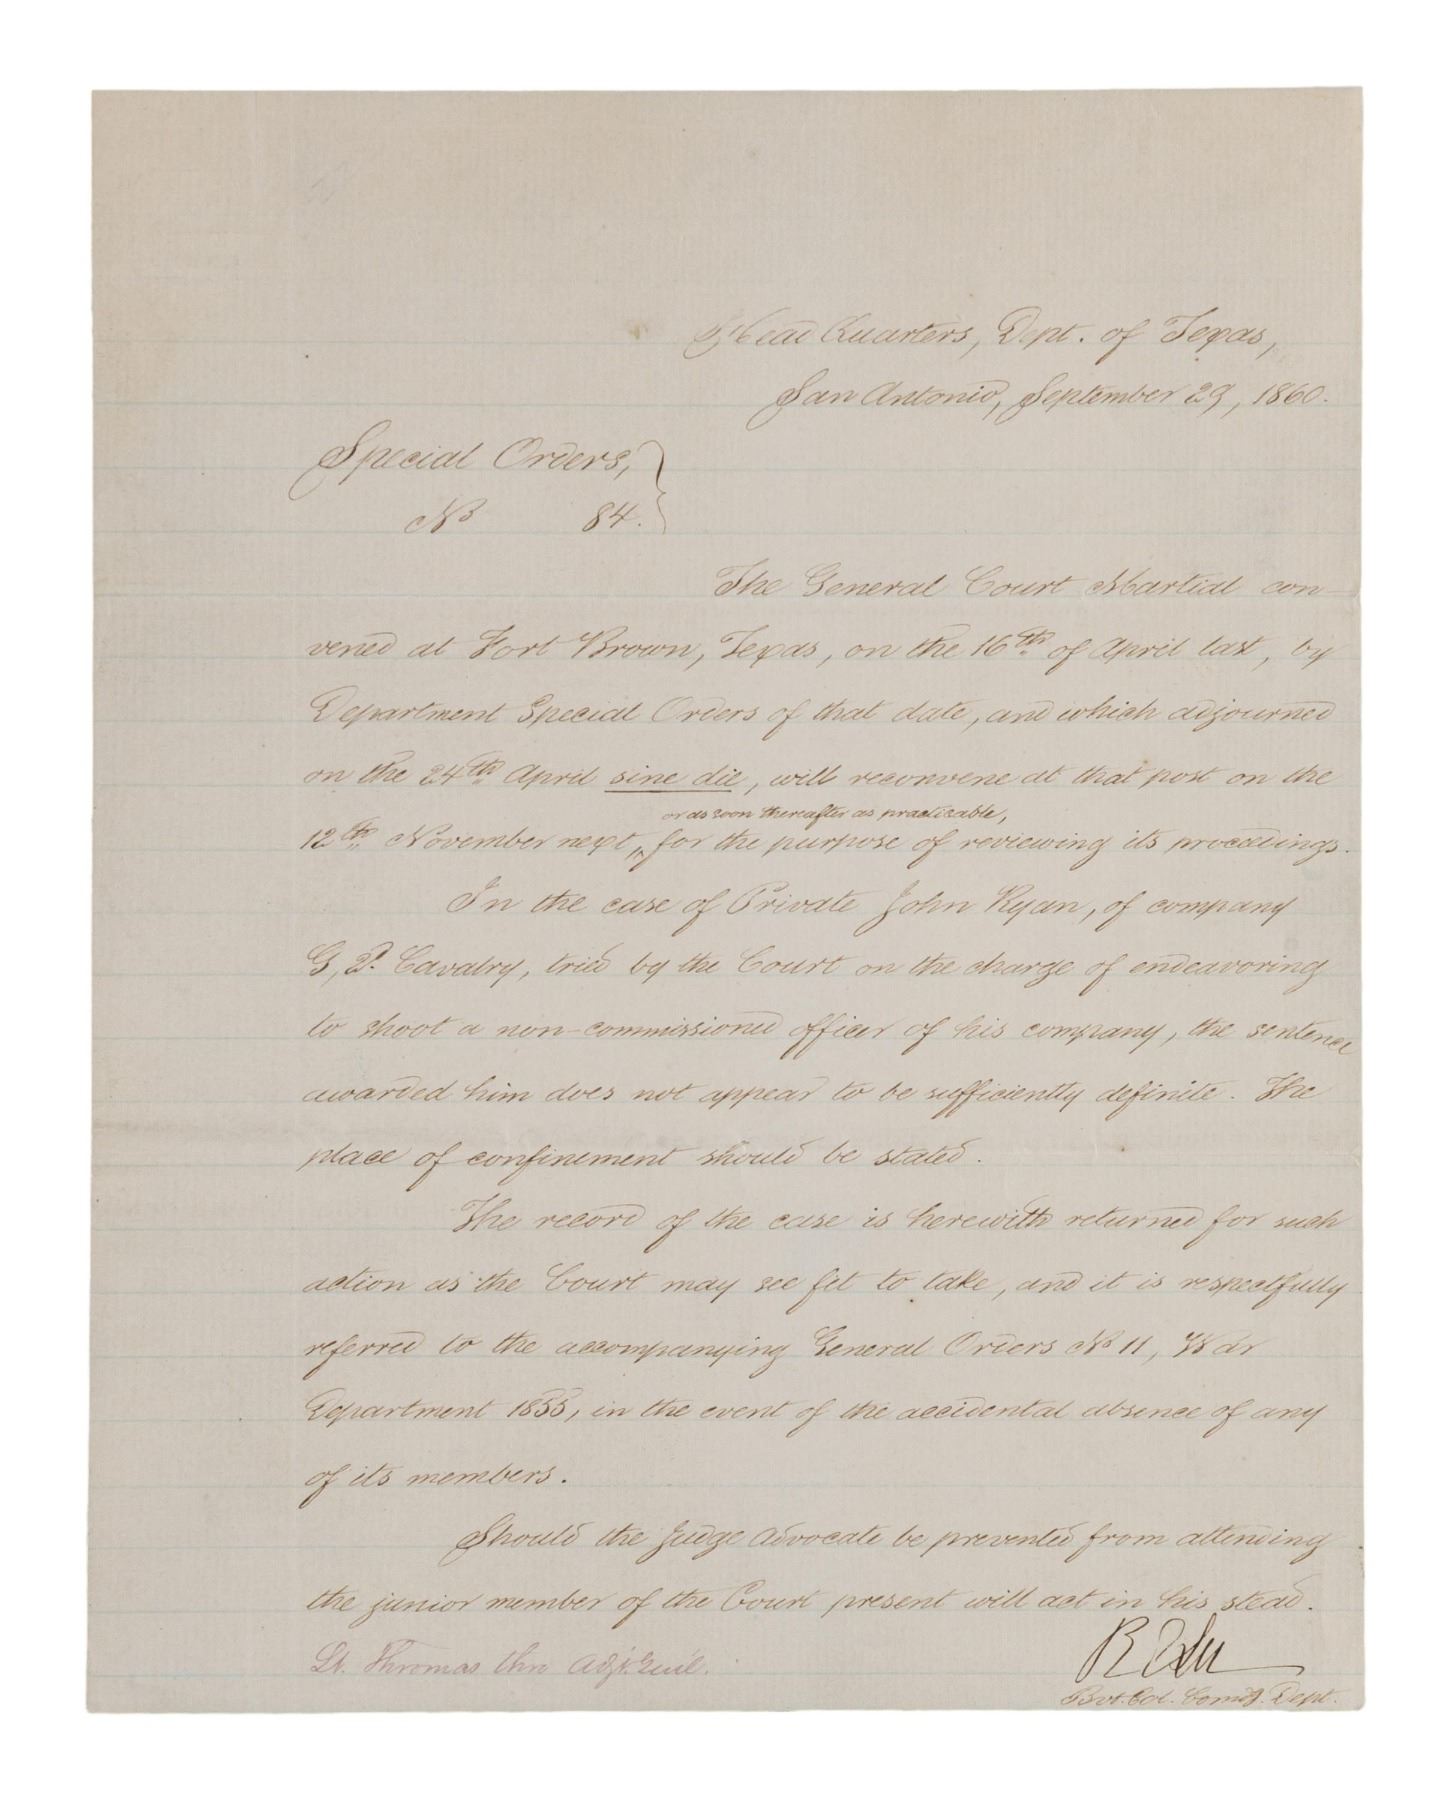 Head Quarters, Dept. of Texas,
San Antonio, September 29, 1860.
Special Orders,
No 84.
The General Court Martial con-
vened at Fort Brown, Texas, on the 16th. of April last, by
Department Special Orders of that date, and which adjourned
on the 24th April sine die, will reconvene at that post on the
or as soon thereafter as practicable,
12th. November next, for the purpose of reviewing its proceedings.
In the case of Private John Ryan, of company
G, 2d. Cavalry, tried by the Court on the charge of endeavoring
to shoot a non-commissioned officer of his company, the sentence
awarded him does not appear to be sufficiently definite. The
place of confinement should be stated.
The record of the case is herewith returned for such
action as the Court may see fit to take, and it is respectfully
referred to the accompanying General Orders No 11, War
Department 1855, in the event of the accidental absence of any
of its members.
Should the Judge Advocate be prevented from attending
the junior member of the Court present will act in his stead.
R E Lee
Lt. Thomas thro Adjt. Gen'l.
Bvt. Col. Comdg. Dept.